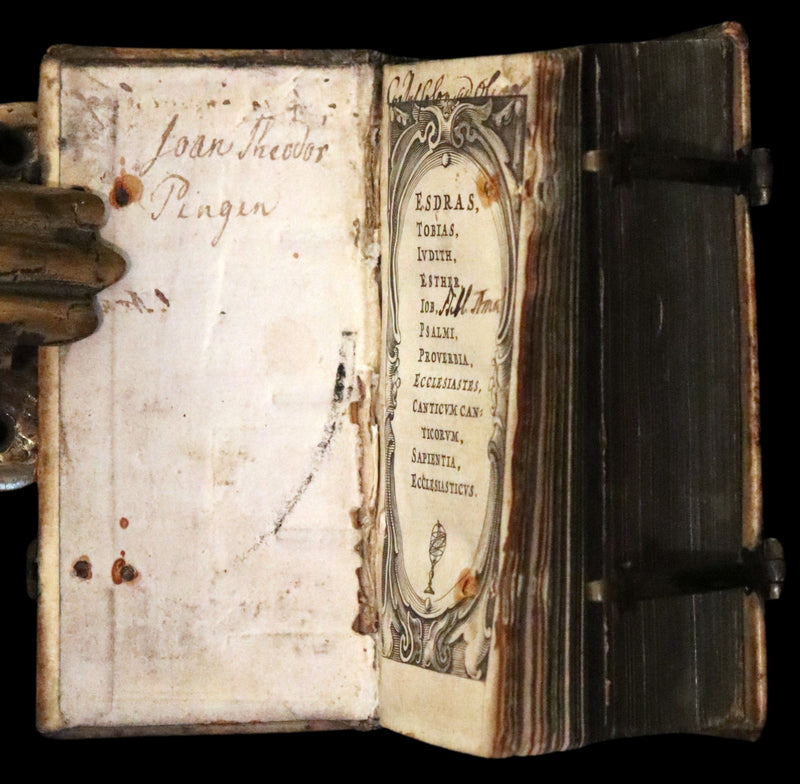 Joan Theodor
Pingen
ESDRAS,
TOBIAS,
IVDITH,
ESTHER,
IOB,
PSALMI,
PROVERBIA,
ECCLESIASTES,
CANTICVM CAN-
TICORVM,
SAPIENTIA,
ECCLESIASTICVS.